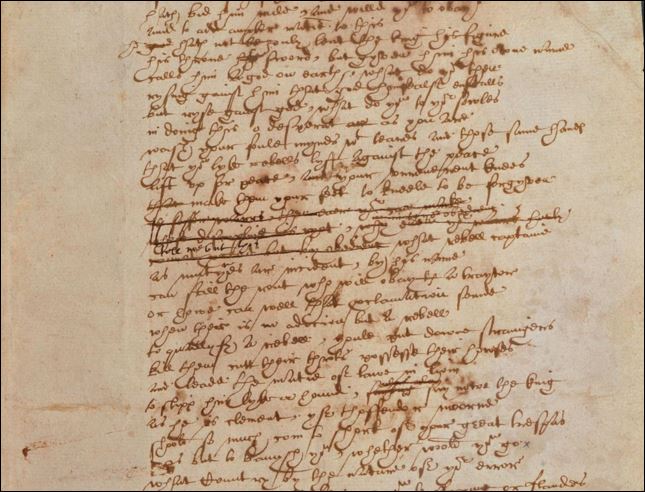 hath bid him rule, and willd yo to obay
and to add ampler matie to this
god hath not le only lent the king his figure
his throne his sword, but gyven him his owne name
calls him a god on earth, what do yo then
rysing gainst him that god himsealf enstalls
but ryse gainst god, what do yo to yor sowles
in doing this o desperat ar as you are
wash your foule mynds wt teares and those same handes
that yo lyke rebells lyft against the peace
lift up for peace, and your unreuerent knees
that make them your feet to kneele to be forgyven
is safer warrs, then euer yo can make
whose discipline is ryot, why euen yor warrs hurly
tell me but this
but by obedienc what rebell captaine
as mutynes ar incident, by his name
can still the rout who will obay th a traytor
or howe can well that proclamation sounde
when ther is no adicion but a rebell
to quallyfy a rebell, youle put downe straingers
kill them cutt their throts possesse their howses
and leade the matie of lawe in liom
to slipp him lyke a hound, say nowe the king
as he is clement, yf thoffendor moorne
shoold so much com to short of your great trespas
as but to banysh yo, whether woold yo go
what Country by the nature of yor error
or flanders